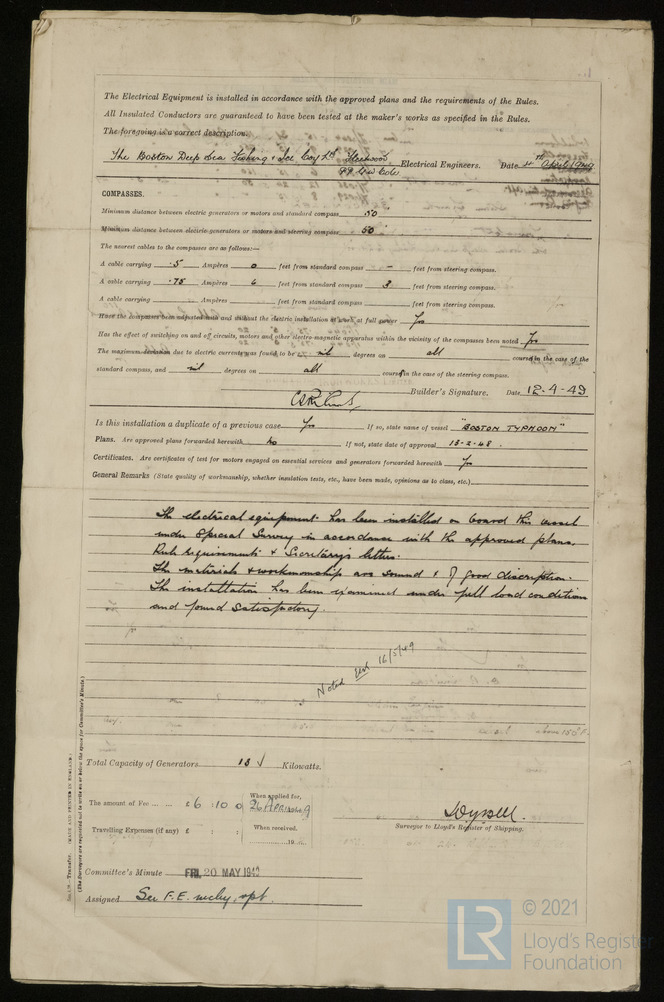 The Electrical Equipment is installed in accordance with the approved plans and the requirements of the Rules.
All Insulated Conductors are guaranteed to have been tested at the maker's works as specified in the Rules.
The foregoing is a correct description.
The Boston Deep Sea Fishing & Ice Coy Ltd Fleetwood Electrical Engineers. Date 4th April 1949
COMPASSES.
Minimum distance between electric generators or motors and standard compass 50'
Minimum distance between electric generators or motors and steering compass 50'
The nearest cables to the compasses are as follows:—
A cable carrying .5 Ampères 0 feet from standard compass - feet from steering compass.
A cable carrying .75 Ampères 6 feet from standard compass 3 feet from steering compass.
A cable carrying Ampères feet from standard compass feet from steering compass.
Have the compasses been adjusted with and without the electric installation at work at full power Yes
Has the effect of switching on and off circuits, motors and other electro-magnetic apparatus within the vicinity of the compasses been noted Yes
The maximum deviation due to electric currents was found to be nil degrees on all course in the case of the
standard compass, and nil degrees on all course in the case of the steering compass.
Builder's Signature. Date 12-4-49
Is this installation a duplicate of a previous case Yes If so, state name of vessel "BOSTON TYPHOON"
Plans. Are approved plans forwarded herewith No If not, state date of approval 13-2-48.
Certificates. Are certificates of test for motors engaged on essential services and generators forwarded herewith Yes
General Remarks (State quality of workmanship, whether insulation tests, etc., have been made, opinions as to class, etc.)
The electrical equipment has been installed on board this vessel
under Special Survey in accordance with the approved plans,
Rule requirements & Secretary's letter.
The materials & workmanship are sound & of good discription.
The installation has been examined under full load condition
and found satisfactory.
Noted 16/5/49
Total Capacity of Generators 13 Kilowatts.
The amount of Fee ... ... £6 : 10 : 0
When applied for,
26 APR 1949
Travelling Expenses (if any) £ : :
When received.
19
Surveyor to Lloyd's Register of Shipping.
Committee's Minute FRI. 20 MAY 1949
Assigned See F.E. mchy. rpt.
(The Surveyors are requested not to write on or below the space for Committee's Minute.)
(MADE AND PRINTED IN ENGLAND.)
LR
© 2021
Lloyd's Register
Foundation